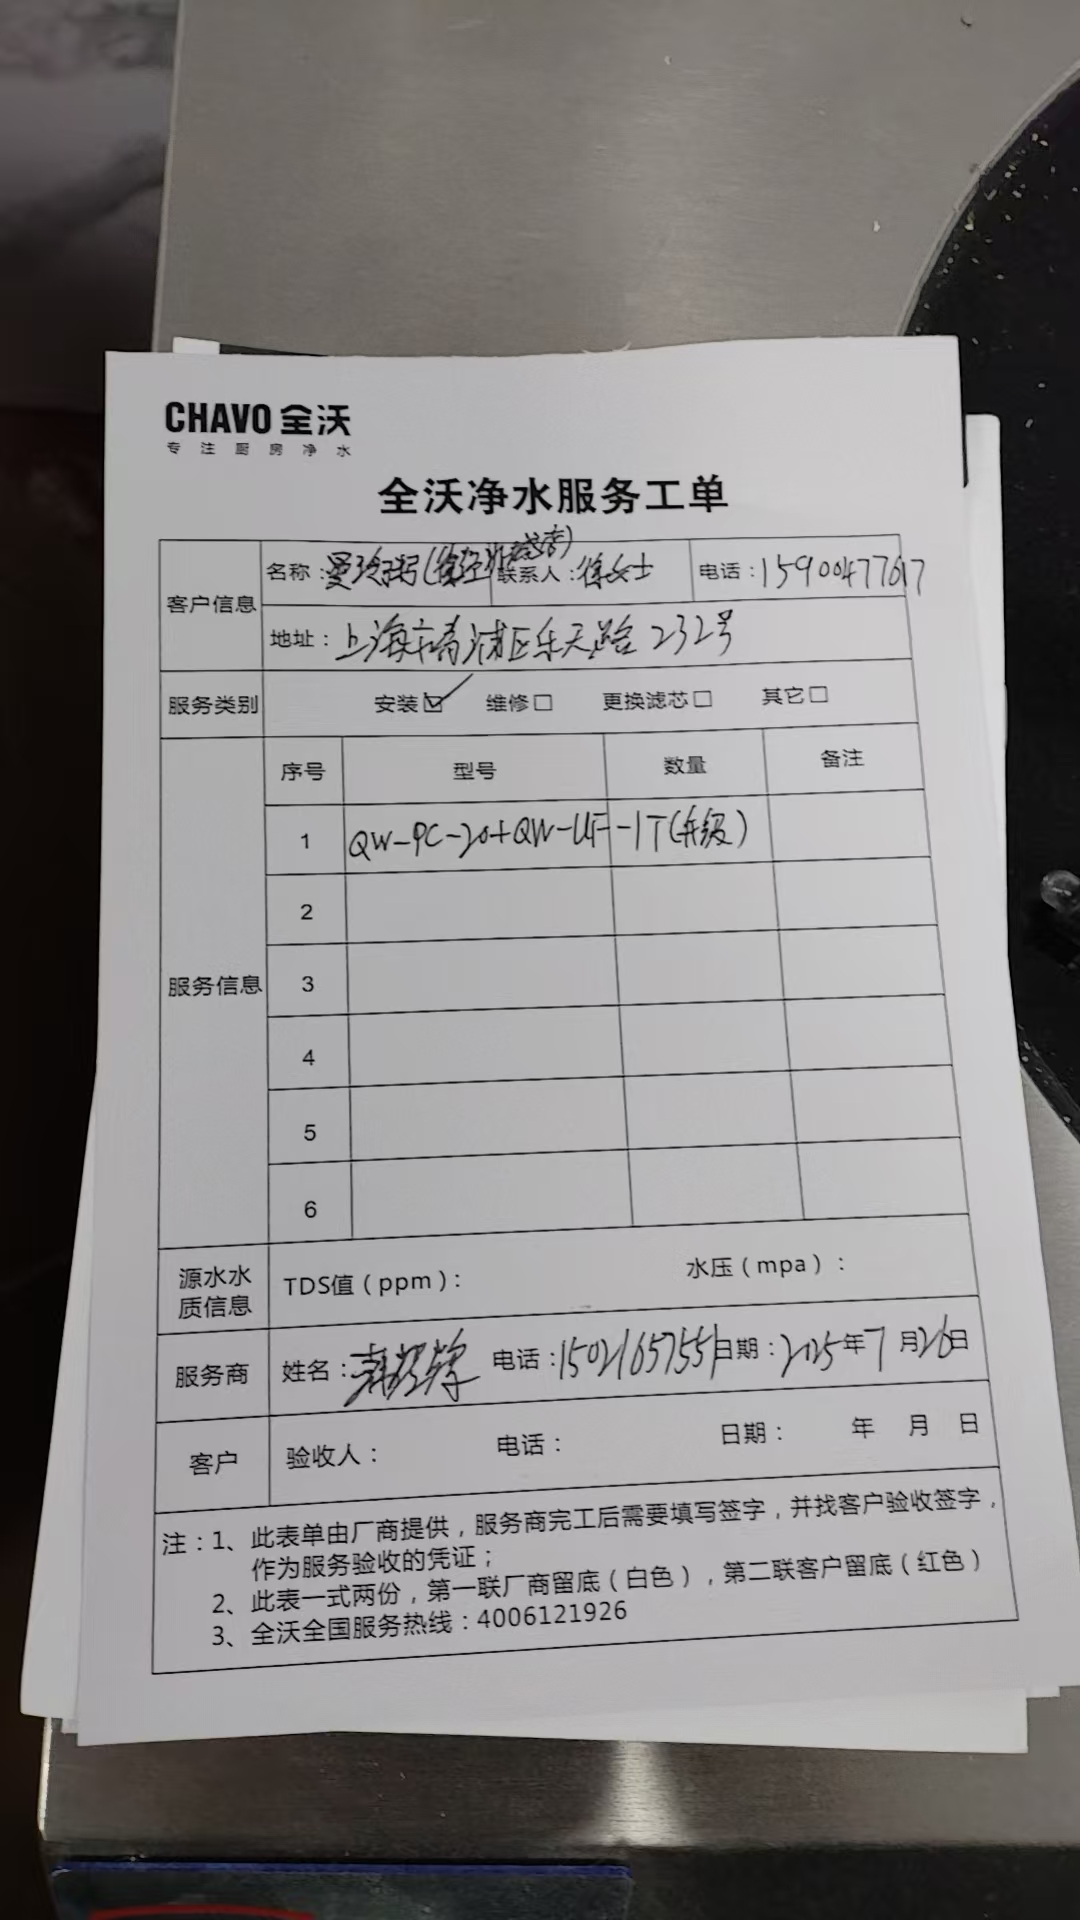 CHAVO 全沃
专注厨房净水
全沃净水服务工单
客户信息
名称：曼玲粥(徐泾 店) 联系人：徐女士 电话：15900477617
地址：上海市青浦区乐天路232号
服务类别 安装☑ 维修□ 更换滤芯□ 其它□
服务信息
序号 型号 数量 备注
1 QW-PC-20+QW-UF-1T(升级)
2
3
4
5
6
源水水质信息 TDS值（ppm）： 水压（mpa）：
服务商 姓名： 电话：15021657551 日期：2025年7月26日
客户 验收人： 电话： 日期： 年 月 日
注：1、此表单由厂商提供，服务商完工后需要填写签字，并找客户验收签字，
作为服务验收的凭证；
2、此表一式两份，第一联厂商留底（白色），第二联客户留底（红色）
3、全沃全国服务热线：4006121926